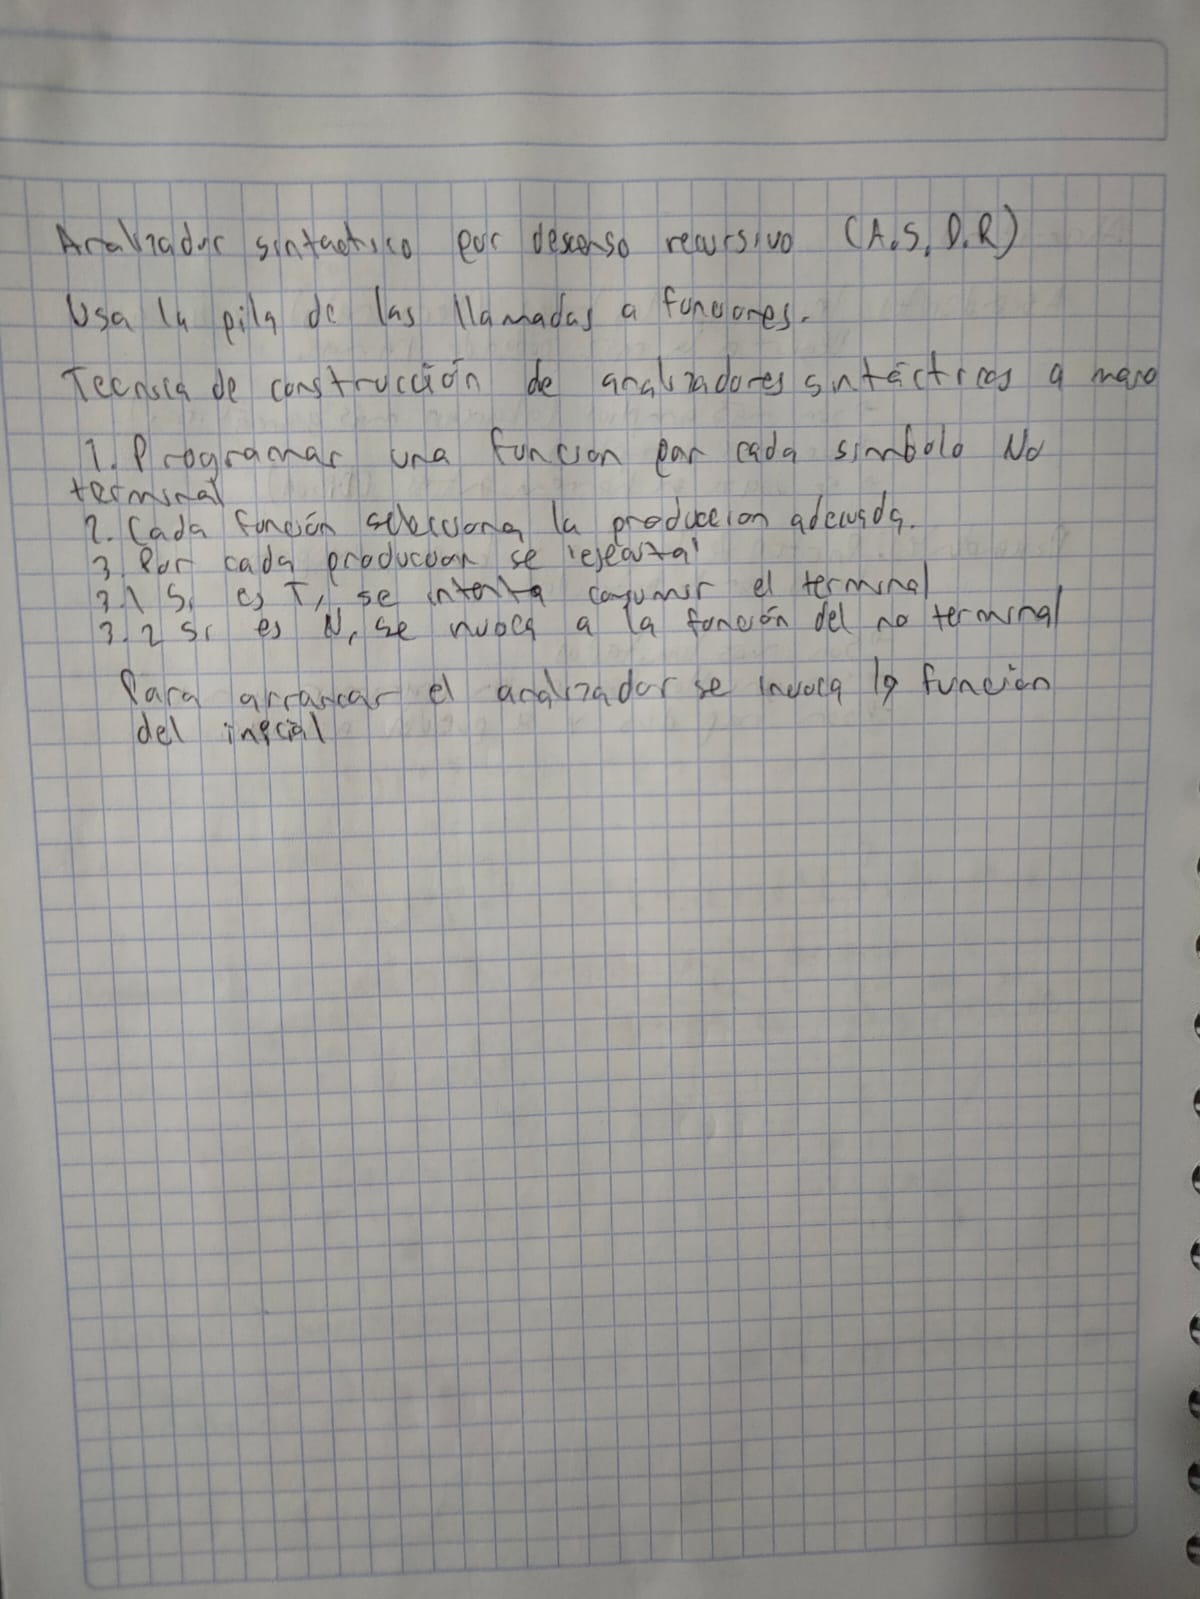 Analizador sintactico por descenso recursivo (A.S.D.R)
Usa la pila de las llamadas a funciones.
Tecnica de construcción de analizadores sintácticos a mano
1. Programar una funcion por cada simbolo No
terminal
2. Cada función selecciona la produccion adecuada.
3. Por cada produccion se 'ejecuta'
3.1 Si es T, se intenta consumir el terminal
3.2 Si es N, se nvoca a la función del no terminal
Para arrancar el analizador se invoca la función
del inicial